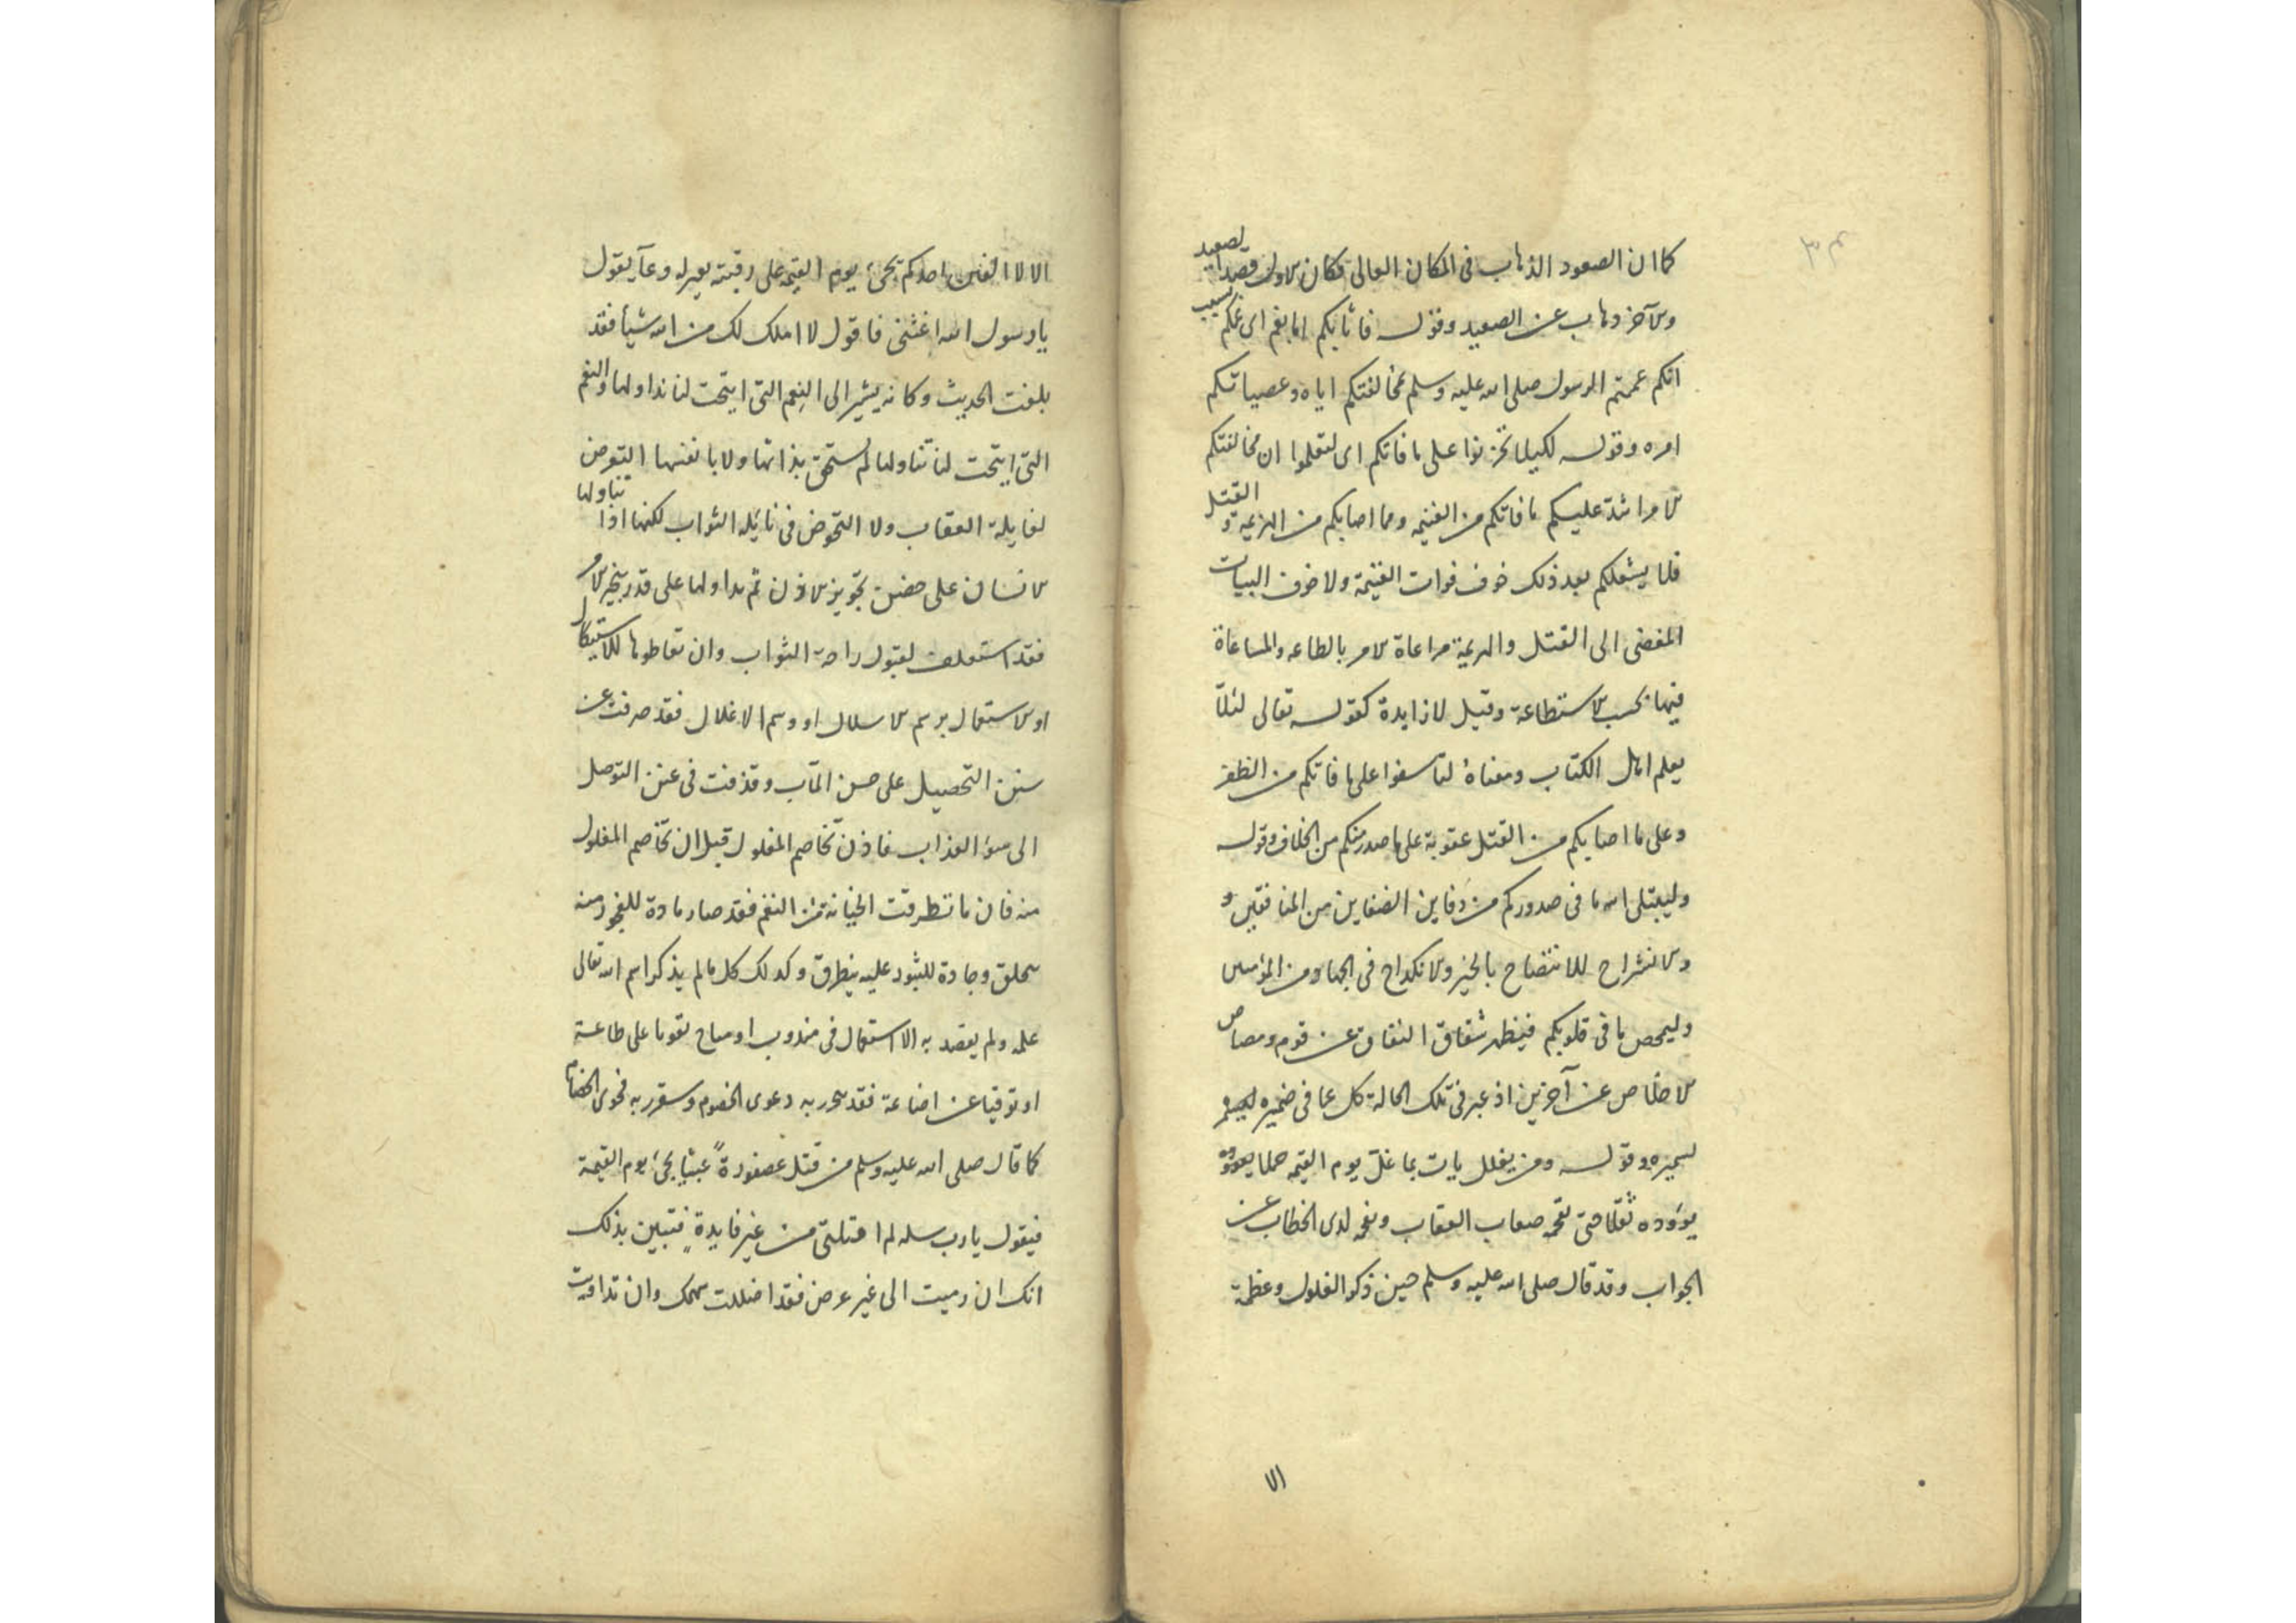 كما ان الصعود الذهاب فى المكان العالى فكان الاول قصد الصعيد
والآخر ذهاب عن الصعيد وقوله فاثابكم غما بغم اى غمكم بسبب
انكم غممتم الرسول صلى الله عليه وسلم بمخالفتكم اياه وعصيانكم
امره وقوله لكيلا تحزنوا على ما فاتكم اى لتعلموا ان مخالفتكم
الامر اشد عليكم مما فاتكم من الغنيمه ومما اصابكم من الهزيمه والقتل
فلا يشغلكم بعد ذلك خوف فوات الغنيمة ولا خوف البيات
المفضى الى القتل والهزيمة مراعاة الامر بالطاعه والمساعاة
فيها بحسب الاستطاعة وقيل لا زايدة كقوله تعالى لئلا
يعلم اهل الكتاب ومعناه لتأسفوا على ما فاتكم من الظفر
وعلى ما اصابكم من القتل عقوبة على ما صدر منكم من الخلاف وقوله
وليبتلى الله ما فى صدوركم من دفاين الضغاين من المنافقين و
والانشراح للانتضاح بالخير والانكداح فى الجهاد من المؤمنين
وليمحص ما فى قلوبكم فيظهر شقاق النفاق عن قوم ومصاص
الاخلاص عن آخرين اذ عبر فى تلك الحالة كل عما فى ضميره
وقوله ومن يغلل يات بما غل يوم القيمه حملا
يؤوده ثقلا حتى صعاب العقاب لدى الخطاب عن
الجواب وقد قال صلى الله عليه وسلم حين ذكر الغلول وعظمه
الا
الا لا الفين احدكم يجىء يوم القيمه على رقبته بعير له رغآ يقول
يا رسول الله اغثنى فاقول لا املك لك من الله شيأ فقد
بلغت الحديث وكانه يشير الى النعم التى ابيحت لنا تداولها والنعم
التى ابيحت لنا تناولها لم تستحق بذاتها ولا بانفسها التعرض
لغايلة العقاب ولا التخوض فى نائله الثواب لكنها اذا تناولها
الانسان على تجويز الاذن ثم تداولها على قدر الامر
فقد لقبول راحة الثواب وان تعاطوها للاستيكال
او الاستعمال برسم الاسلال او وسم الاغلال فقد صرفت عن
سنن التحصيل على حسن المآب وقذفت فى عنن التوصل
الى سوء العذاب فاذن تخاصم المغلول قبل ان تخاصم المغلول
منه فان ما تطرقت الخيانة من النعم فقد صار مادة للفجور منه
وجادة للثبور عليه يتطرق وكذلك كل ما لم يذكر اسم الله تعالى
عليه ولم يقصد به الا استعمال فى مندوب او مباح تقويا على طاعة
او توقيا عن اضاعة فقد به دعوى الخصوم به فحوى الخصام
كما قال صلى الله عليه وسلم من قتل عصفورة عبثا يجىء يوم القيمة
فيقول يا رب سله لم قتلنى من غير فايدة فتبين بذلك
انك ان رميت الى غير عرض فقد اضللت سهمك وان تداويت